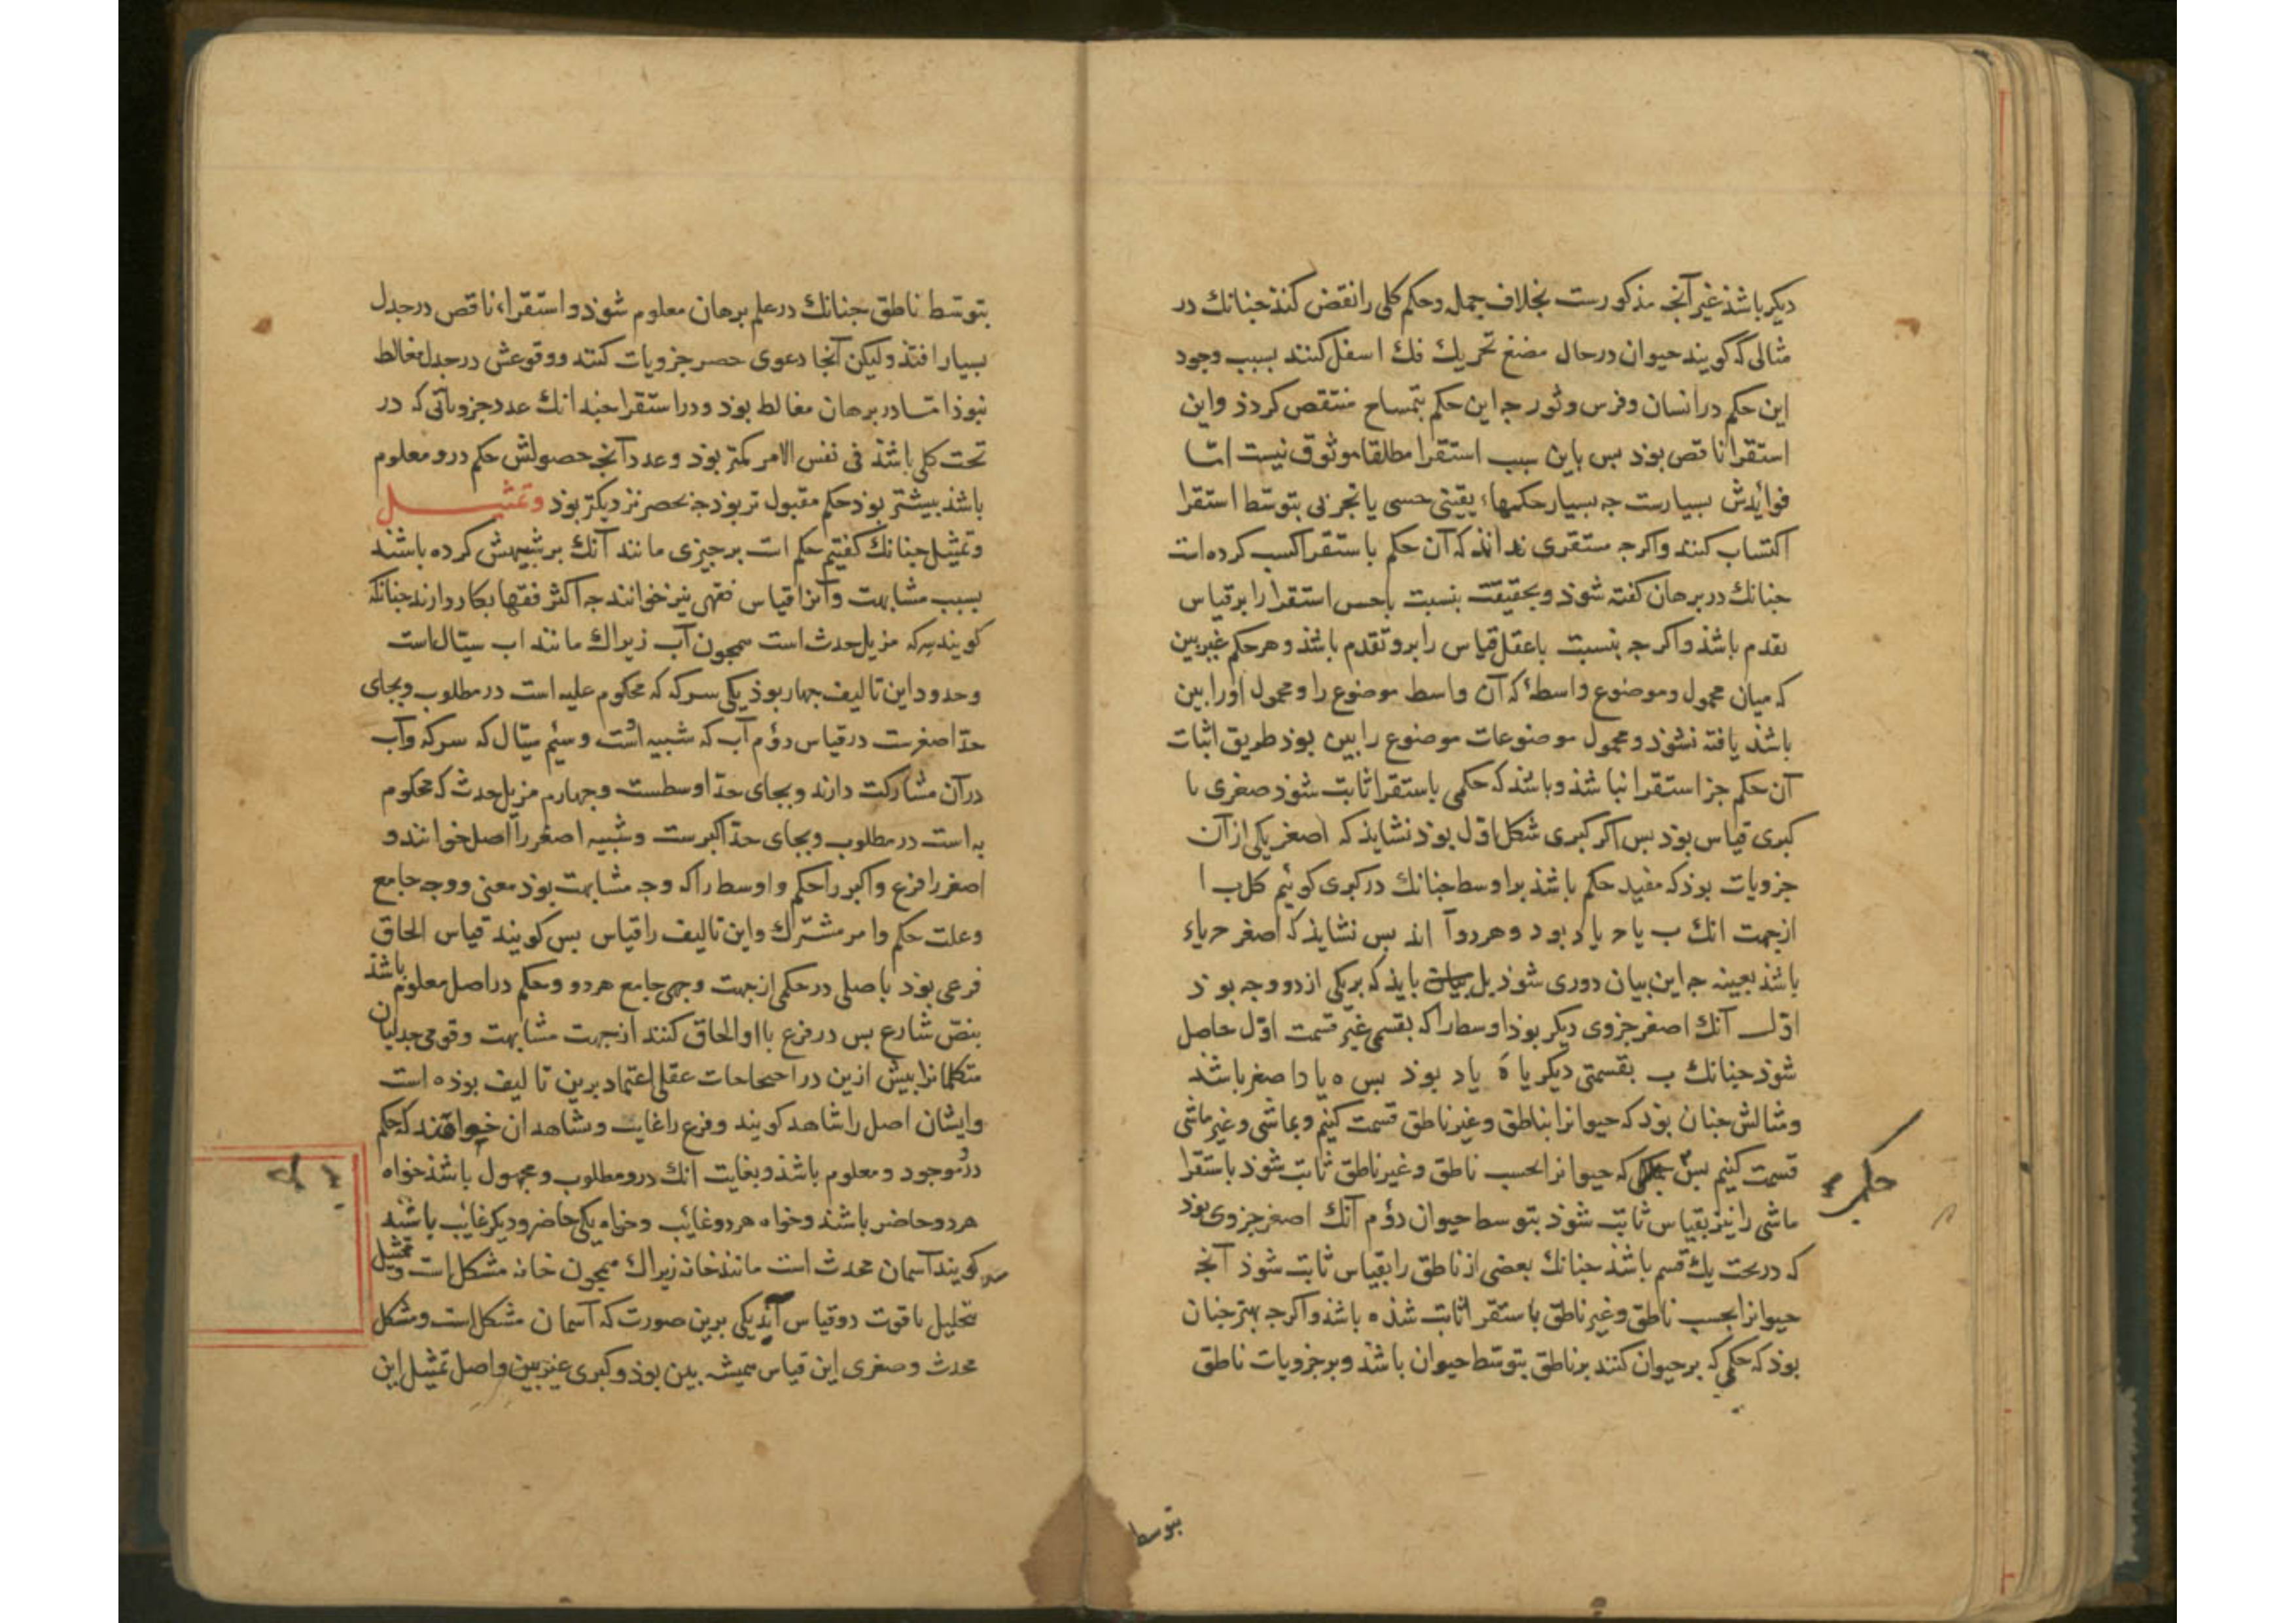 دیکر باشذ غیر آنجه مذکورست بخلاف جمله و حکم کلی را نقض کنذ جنانك در
مثالی که کویند حیوان در حال مضغ تحریك فك اسفل کنند بسبب وجود
این حکم در انسان و فرس و ثور جه این حکم بتمساح منتقض کردذ و این
استقرا ناقص بوذ بس باین سبب استقرا مطلقا موثوق نیست امّا
فوایدش بسیارست جه بسیار حکمهاء یقینی حسی یا تجربی بتوسّط استقرا
اکتساب کنند و اکرجه مستقری نداند که آن حکم باستقرا کسب کرده است
جنانك در برهان کفته شوذ و بحقیقت بنسبت با حس استقرا را بر قیاس
تقدم باشذ و اکرجه بنسبت با عقل قیاس را برو تقدم باشذ و هر حکم غیر بین
که میان محمول و موضوع واسطهٔ که آن واسط موضوع را و محمول اورا بین
باشذ یافته نشوذ و محمول موضوعات موضوع را بین بوذ طریق اثبات
آن حکم جز استقرا نباشذ و باشد که حکمی باستقرا ثابت شوذ صغری یا
کبری قیاس بوذ بس اکر کبری شکل اوّل بوذ نشایذ که اصغر یکی از آن
جزویات بوذ که مفید حکم باشذ بر اوسط جنانك در کبری کوئیم کل ب ا
از جهت انك ب یا ح یا د بود و هر دو آ اند بس نشایذ که اصغر ح یا د
باشذ بعینه جه این بیان دوری شوذ بل بایذ که بر یکی از دو وجه بوذ
اوّل آنك اصغر جزوی دیکر بوذ اوسط را که بقسمی غیر قسمت اوّل حاصل
شوذ جنانك ب بقسمتی دیکر یا ه یا د بوذ بس ه یا د اصغر باشذ
و مثالش جنان بوذ که حیوانرا بناطق و غیر ناطق قسمت کنیم و بماشی و غیر ماشی
قسمت کنیم بس حکمی که حیوانرا بحسب ناطق و غیر ناطق ثابت شوذ باستقرا
ماشی را نیز بقیاس ثابت شوذ بتوسط حیوان دوّم آنك اصغر جزوی بوذ
که در تحت یك قسم باشذ جنانك بعضی از ناطق را بقیاس ثابت شوذ آنجه
حیوانرا بحسب ناطق و غیر ناطق باستقرا ثابت شذه باشذ و اکرجه بهتر جنان
بوذ که حکمی که بر حیوان کنند بر ناطق بتوسّط حیوان باشذ و بر جزویات ناطق
حکمی
بتوسط
بتوسّط ناطق جنانك در علم برهان معلوم شوذ و استقراء ناقص در جدل
بسیار افتذ ولیکن آنجا دعوی حصر جزویات کنند و وقوعش در جدل مغالطه
نبوذ امّا در برهان مغالطه بوذ و در استقرا جندانك عدد جزویاتی که در
تحت کلی باشذ فی نفس الامر کمتر بوذ و عدد آنجه حصولش حکم درو معلوم
باشذ بیشتر بوذ حکم مقبول تر بوذ جه بحصر نزدیکتر بوذ وتمثیل
و تمثیل جنانك کفتیم حکم است بر جیزی مانند آنك بر شبیهش کرده باشند
بسبب مشابهت و آنرا قیاس فقهی نیز خوانند جه اکثر فقها بکار دارند جنانکه
کویند سرکه مزیل حدث است همجون آب زیراك مانند اب سیّال است
و حدود این تالیف جهار بوذ یکی سرکه که محکوم علیه است در مطلوب و بجای
حدّ اصغرست در قیاس دوّم آب که شبیه اوست و سیّم سیّال که سرکه و آب
در آن مشارکت دارند و بجای حدّ اوسطست و جهارم مزیل حدث که محکوم
به است در مطلوب و بجای حدّ اکبرست و شبیه اصغر را اصل خوانند و
اصغر را فرع و اکبر را حکم و اوسط را که وجه مشابهت بوذ معنی و وجه جامع
و علت حکم و امر مشترك و این تالیف را قیاس بس کویند قیاس الحاق
فرعی بوذ باصلی در حکمی از جهت وجهی جامع هر دو و حکم در اصل معلوم باشذ
بنصّ شارع بس در فرع با او الحاق کنند از جهت مشابهت و قومی جدلیان
متکلمانرا بیش ازین در احتجاجات عقلی اعتماد برین تالیف بوذه است
و ایشان اصل را شاهد کویند و فرع را غایب و بشاهد آن خواهند که حکم
درو موجود و معلوم باشذ و بغایب انك درو مطلوب و مجهول باشذ خواه
هر دو حاضر باشند و خواه هر دو غایب و خواه یکی حاضر و دیکر غایب باشد
کویند آسمان محدث است مانند خانه زیراك همجون خانه مشکل است و تمثیل
بتحلیل باقوت دو قیاس آید یکی برین صورت که آسمان مشکل است و مشکل
محدث و صغری این قیاس همیشه بین بوذ و کبری غیر بین و اصل تمثیل این